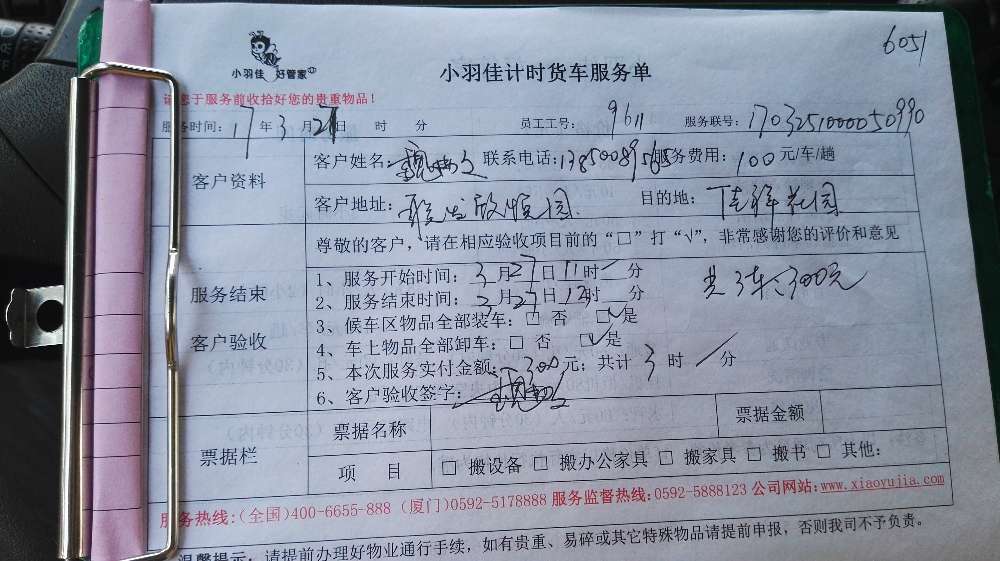 6051
小羽佳 好管家
小羽佳计时货车服务单
请您于服务前收拾好您的贵重物品！
服务时间：17年3月27日 时 分 员工工号：9611 服务联号：1703251000050990
客户资料
客户姓名： 联系电话：13850089565 服务费用：100元/车/趟
客户地址： 目的地：佳祥花园
服务结束
客户验收
尊敬的客户，请在相应验收项目前的“□”打“√”，非常感谢您的评价和意见
1、服务开始时间：3月27日11时/分
共3车：300元
2、服务结束时间：3月27日 时 分
3、候车区物品全部装车：□ 否 □√是
4、车上物品全部卸车：□ 否 □√是
5、本次服务实付金额：300元；共计3时/分
6、客户验收签字：
票据栏
票据名称 票据金额
项 目 □ 搬设备 □ 搬办公家具 □ 搬家具 □ 搬书 □ 其他：
服务热线:(全国)400-6655-888 (厦门)0592-5178888 服务监督热线:0592-5888123 公司网站:www.xiaoyujia.com
温馨提示：请提前办理好物业通行手续，如有贵重、易碎或其它特殊物品请提前申报，否则我司不予负责。